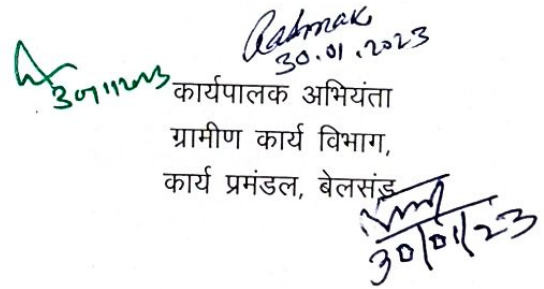 30.01.2023
30/1/2023
कार्यपालक अभियंता
ग्रामीण कार्य विभाग,
कार्य प्रमंडल, बेलसंड
30/01/23